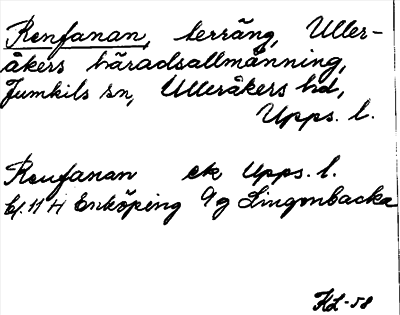 Renfanan, terräng, Uller-
åkers häradsallmänning,
Jumkils sn, Ulleråkers hd,
Upps. l.
Renfanan ek Upps. l.
bl. 11 H Enköping 9g Lingonbacka
HL-58